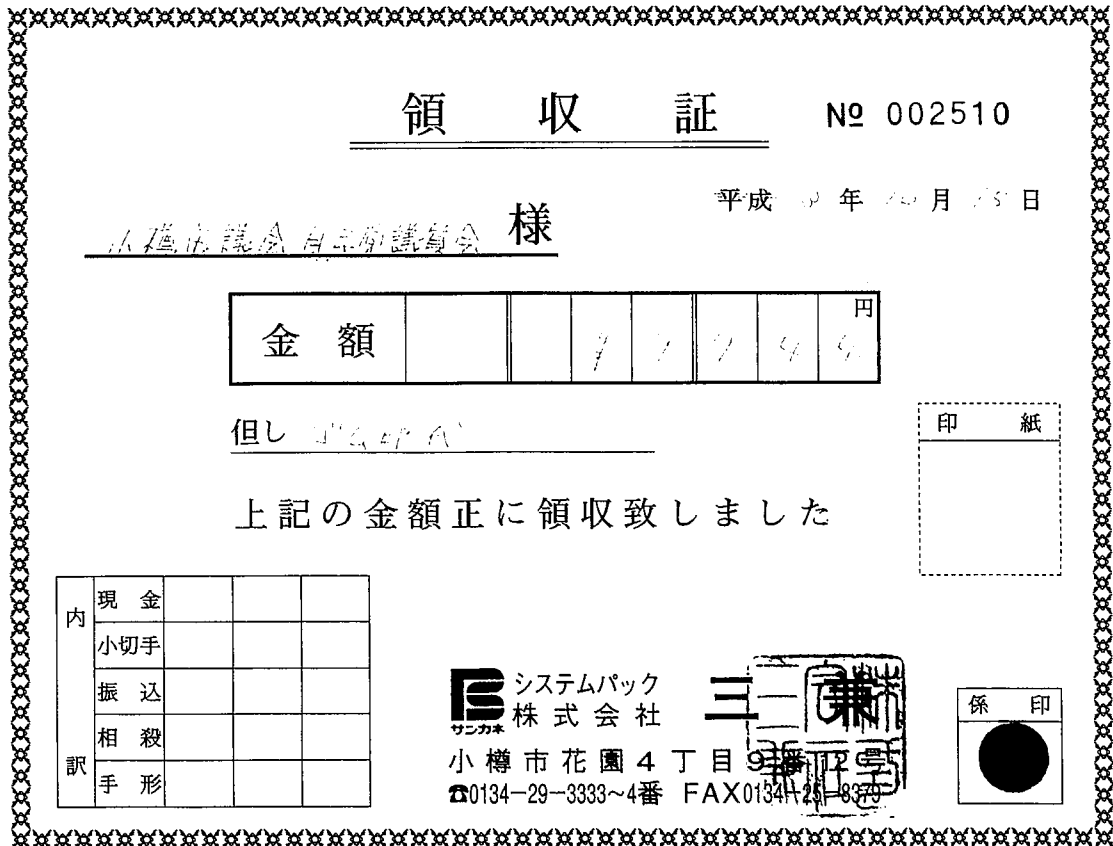 領収証 № 002510
平成 年 月 日
小樽市議会自民党議員会 様
金額 円
但し
上記の金額正に領収致しました
印紙
内訳
現金
小切手
振込
相殺
手形
サンカネ
システムパック
株式会社 三兼
小樽市花園4丁目9番12号
☎0134-29-3333~4番 FAX0134-25-8379
係印